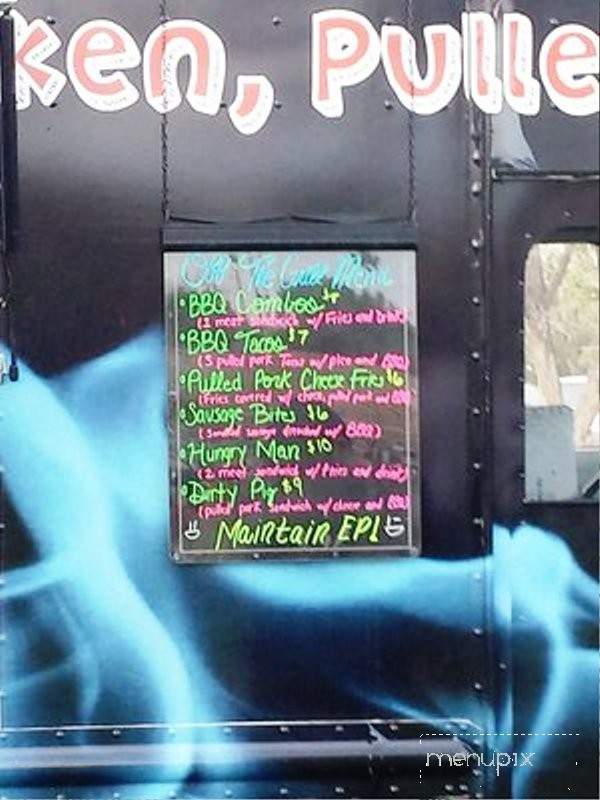 ken, Pulle
Menu
BBQ Combos $8
(1 meat sandwich w/ Fries and Drink)
BBQ Tacos $7
(3 pulled pork Tacos w/ pico and BBQ)
Pulled Pork Cheese Fries $6
(Fries covered w/ cheese, pulled pork and BBQ)
Sausage Bites $6
(Smoked sausage w/ BBQ)
Hungry Man $10
(2 meat sandwich w/ fries and drink)
Dirty Pig $9
(pulled pork sandwich w/ cheese and BBQ)
Maintain EPL
menupix